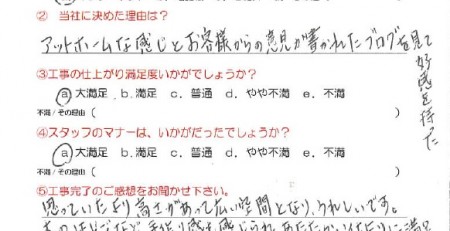 ② 当社に決めた理由は？
アットホームな感じとお客様からの意見が書かれたブログを見て
好感を持た
③工事の仕上がり満足度いかがでしょうか？
a. 大満足 b. 満足 c. 普通 d. やや不満 e. 不満
不満/その理由 (
④スタッフのマナーは、いかがだったでしょうか？
a. 大満足 b. 満足 c. 普通 d. やや不満 e. 不満
不満/その理由 (
⑤工事完了のご感想をお聞かせ下さい。
思っていたより高さがあって広い空間となり、うれしいです。